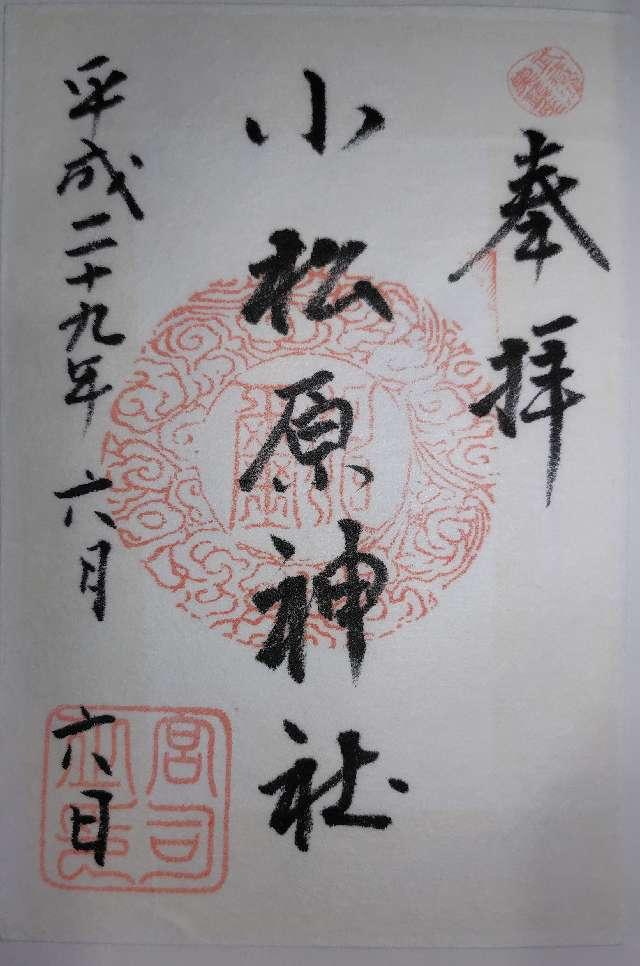 奉拝
小松原神社
平成二十九年 六月 六日
宮司